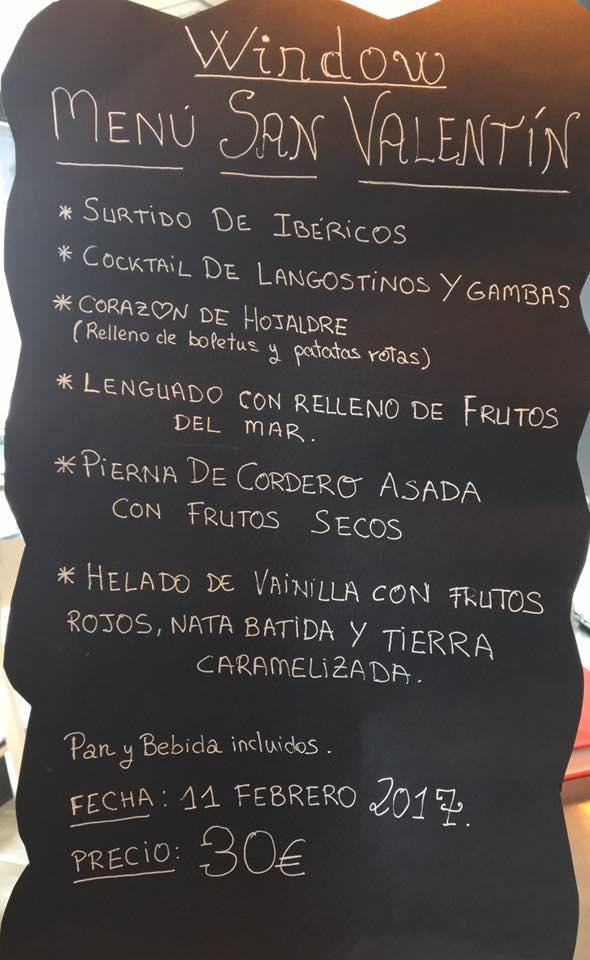 Window
MENÚ SAN VALENTÍN
* SURTIDO DE IBÉRICOS
* COCKTAIL DE LANGOSTINOS Y GAMBAS
* CORAZ♡N DE HOJALDRE
(Relleno de boletus y patatas rotas)
* LENGUADO CON RELLENO DE FRUTOS
DEL MAR.
* PIERNA DE CORDERO ASADA
CON FRUTOS SECOS
* HELADO DE VAINILLA CON FRUTOS
ROJOS, NATA BATIDA Y TIERRA
CARAMELIZADA.
Pan y Bebida incluidos.
FECHA: 11 FEBRERO 2017.
PRECIO: 30€